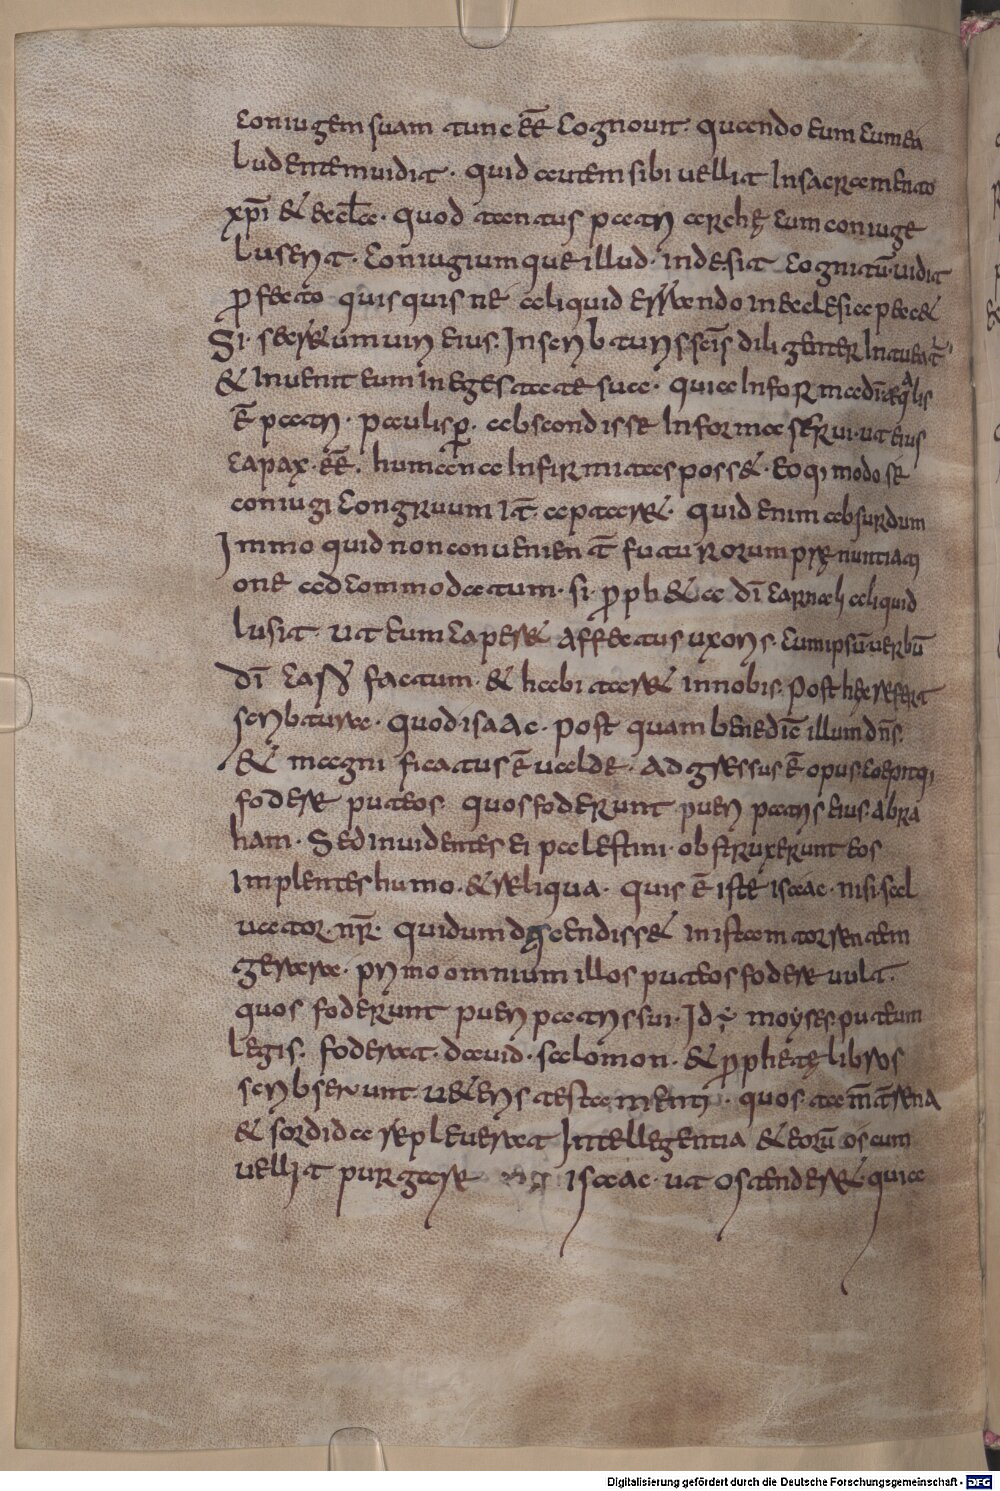 coniugem suam tunc eē cognouit. quando eum cum ea
ludentem uidit. quid autem sibi uellit In sacramento
xp̄i & aeclae. quod tantus patriarchę cum coniuge
luserit. coniugium que illud. inde sit cognitū. uidit
profecto quisquis ne aliquid errando in eclesia peccet
Si. secretum uiri eius. In scribturis sc̄is diligenter Intueat̄
& Inuenit eum In egestate suae. quia In forma dī aequalis
ē patri. paulisper. abscondisse In forma serui. ut eius
capax. eē. humana Infirmitas posset. eoq; modo se
coniugi congruum it̄. aptaret. quid enim absurdum
Immo quid non conuenient̄ futurorum prenuntiati
one adcommodatum. si. propheta dī carnali aliquid
lusit. ut eum caperet affectus uxoris. cum ipsū uerbū
dī caro factum. & habitaret in nobis. Post hęc refert
scribtura. quod isaac. post quam benedic̄ illum dn̄s.
& magnificatus ē ualde. adgressus ē opus. coepitq;
fodere puteos quos foderunt pueri patris eius. abra
ham. Sed inuidentes ei palestini. obstruxerunt eos
Implentes humo. & reliqua. quis ē iste isaac. nisi sal
uator. nr̄. qui dum discendisset in istam torrentem
gerare. primo omnium illos puteos fodere uult.
quos foderunt pueri patris sui. Id ÷ moyses. puteum
legis. foderat. dauid. salomon. & prophetę libros
scribserunt. ueteris testamenti. quos tam̄ terrena
& sordida repleuerat Intellegentia & eorū os cum
uellit purgare isaac. ut ostenderet. quia
Digitalisierung gefördert durch die Deutsche Forschungsgemeinschaft - DFG